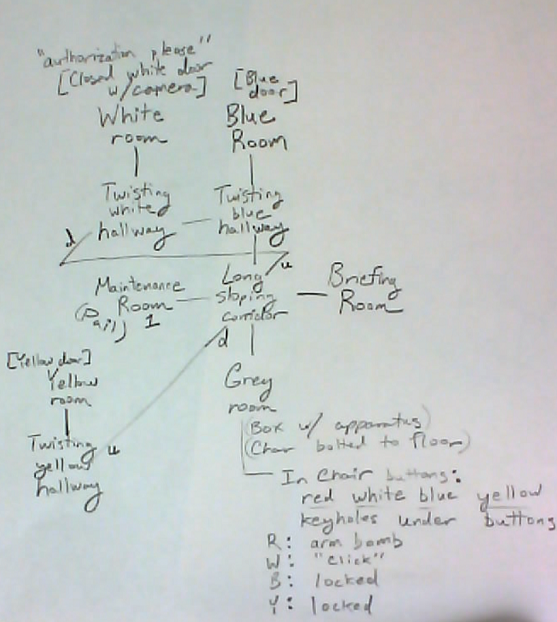 "authorization please"
[Closed white door
w/camera]
White
room
[Blue
door]
Blue
Room
Twisting
white
hallway
Twisting
blue
hallway
d
u
Maintenance
Room
1
(Pail)
Long
sloping
corridor
Briefing
Room
d
[Yellow door]
Yellow
room
Twisting
yellow
hallway
u
Grey
room
(Box w/ apparatus)
(Chair bolted to floor)
In Chair buttons:
red white blue yellow
keyholes under buttons
R: arm bomb
W: "click"
B: locked
Y: locked